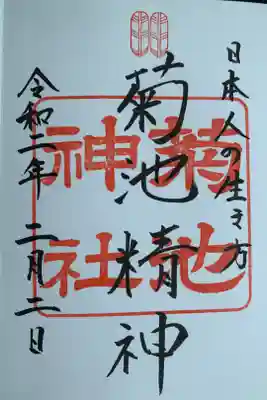 日本人の生き方
菊池精神
菊池
神社
令和二年 二月二日